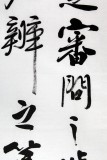 之審問之
辨之